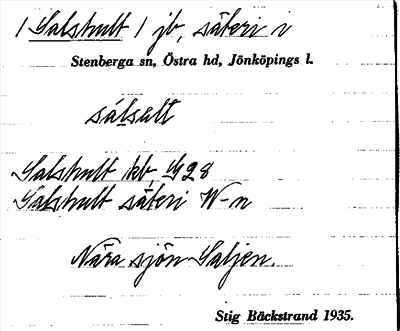 / Salshult / jb, säteri i
Stenberga sn, Östra hd, Jönköpings l.
sálsult
Salshult kb G28
Salshult säteri W-n
Nära sjön Saljen.
Stig Bäckstrand 1935.